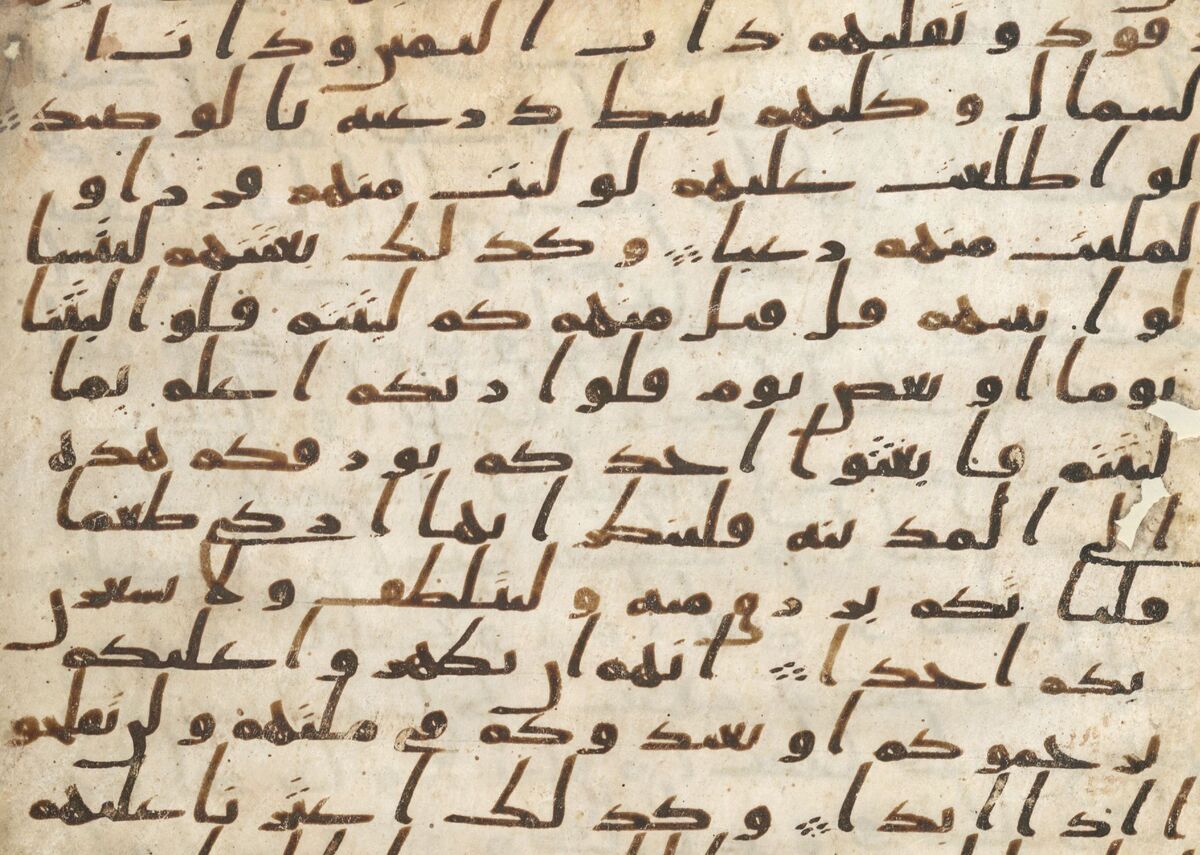 رقود ونقلبهم ذات اليمين وذات ا
لشمال وكلبهم بسط ذرعيه بالوصيد
لو اطلعت عليهم لوليت منهم فررا و
لملئت منهم رعبا وكذلك بعثنهم ليتسا
لوا بينهم قل قئل منهم كم لبثتم قلوا لبثنا
يوما او بعض يوم قلوا ربكم اعلم بما
لبثتم فابعثوا احدكم بورقكم هذه
الى المدينه فلينظر ايها ازكى طعما
فلياتكم برزق منه وليتلطف ولا يشعرن
بكم احدا انهم ان يظهروا عليكم
يرجموكم او يعيدوكم في ملتهم ولن تفلحو
ا اذا ابدا وكذلك اعثرنا عليهم